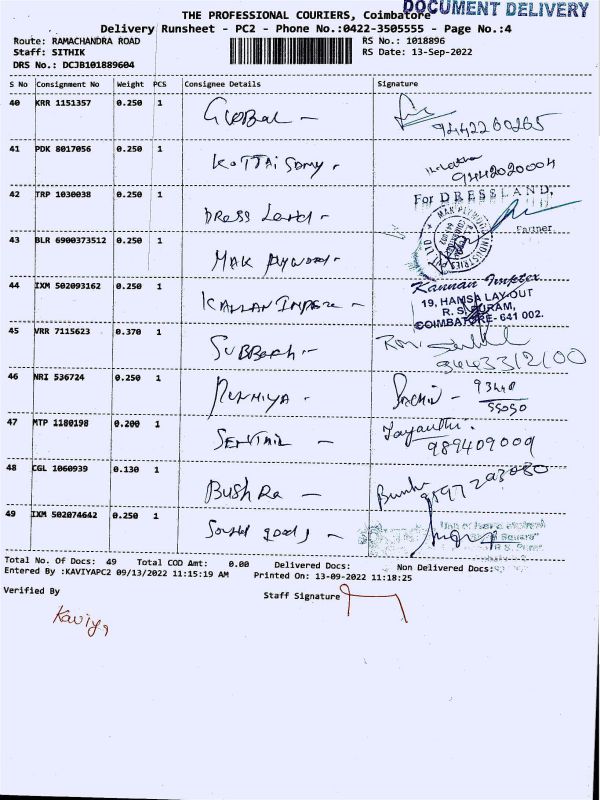 DOCUMENT DELIVERY
THE PROFESSIONAL COURIERS, Coimbatore
Delivery Runsheet - PC2 - Phone No.:0422-3505555 - Page No.:4
Route: RAMACHANDRA ROAD
RS No.: 1018896
Staff: SITHIK
RS Date: 13-Sep-2022
DRS No.: DCJB101889604
S No Consignment No Weight PCS Consignee Details Signature
40 KRR 1151357 0.250 1
Global -
9442260265
41 PDK 8017056 0.250 1
9442020004
42 TRP 1030038 0.250 1
For DRESSLAND,
Dress Land -
Partner
43 BLR 6900373512 0.250 1
MAK Plywood -
44 IXM 502093162 0.250 1
Kannan Impex
19, HAMSA LAY-OUT
R. S. PURAM,
COIMBATORE- 641 002.
45 VRR 7115623 0.370 1
9443312100
46 NRI 536724 0.250 1
Sachin - 93448
55050
47 MTP 1180198 0.200 1
Jayanthi.
Senthil -
989409009
48 CGL 1060939 0.130 1
Bushra -
49 IXM 502074642 0.250 1
Total No. Of Docs: 49 Total COD Amt: 0.00 Delivered Docs: Non Delivered Docs:
Entered By :KAVIYAPC2 09/13/2022 11:15:19 AM Printed On: 13-09-2022 11:18:25
Verified By
Staff Signature
Kaviya